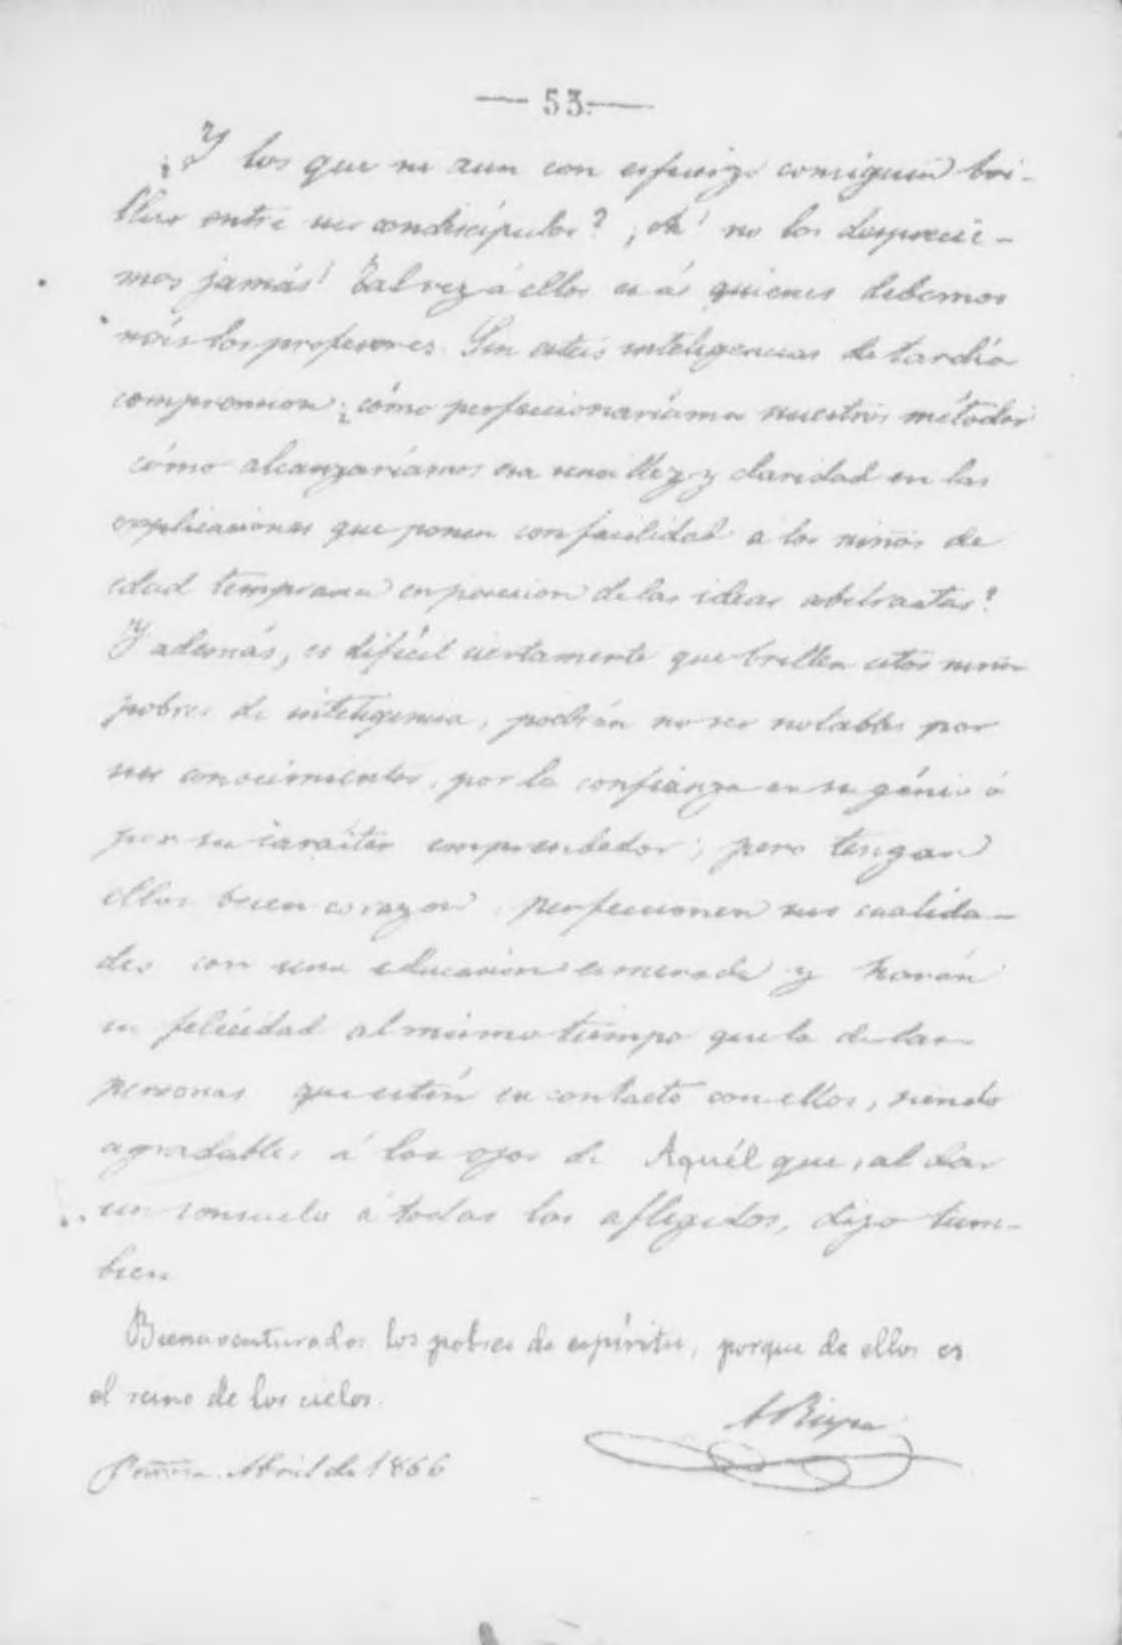 — 53. —
¿Y los que ni aun con esfuerzo consiguen bri-
llar entre sus condiscípulos? ¡Oh! no los desprecie-
mos jamás! Tal vez á ellos es á quienes debemos
más los profesores. Sin estas inteligencias de tardía
comprension ¿cómo perfeccionaríamos nuestros métodos
cómo alcanzaríamos esa sencillez y claridad en las
explicaciones que ponen con facilidad a los niños de
edad temprana en posesion de las ideas abstractas?
Y además, es difícil ciertamente que brillen estos niños
pobres de inteligencia, podrán no ser notables por
sus conocimientos, por la confianza en su génio ó
por su carácter emprendedor; pero tengan
ellos buen corazon, perfeccionen sus cualida-
des con una educacion esmerada y harán
su felicidad al mismo tiempo que la de las
personas que estén en contacto con ellos, siendo
agradables á los ojos de Aquél que, al dar
un consuelo á todos los afligidos, dijo tam-
bien
Bienaventurados los pobres de espíritu, porque de ellos es
el reino de los cielos.
Abril de 1866